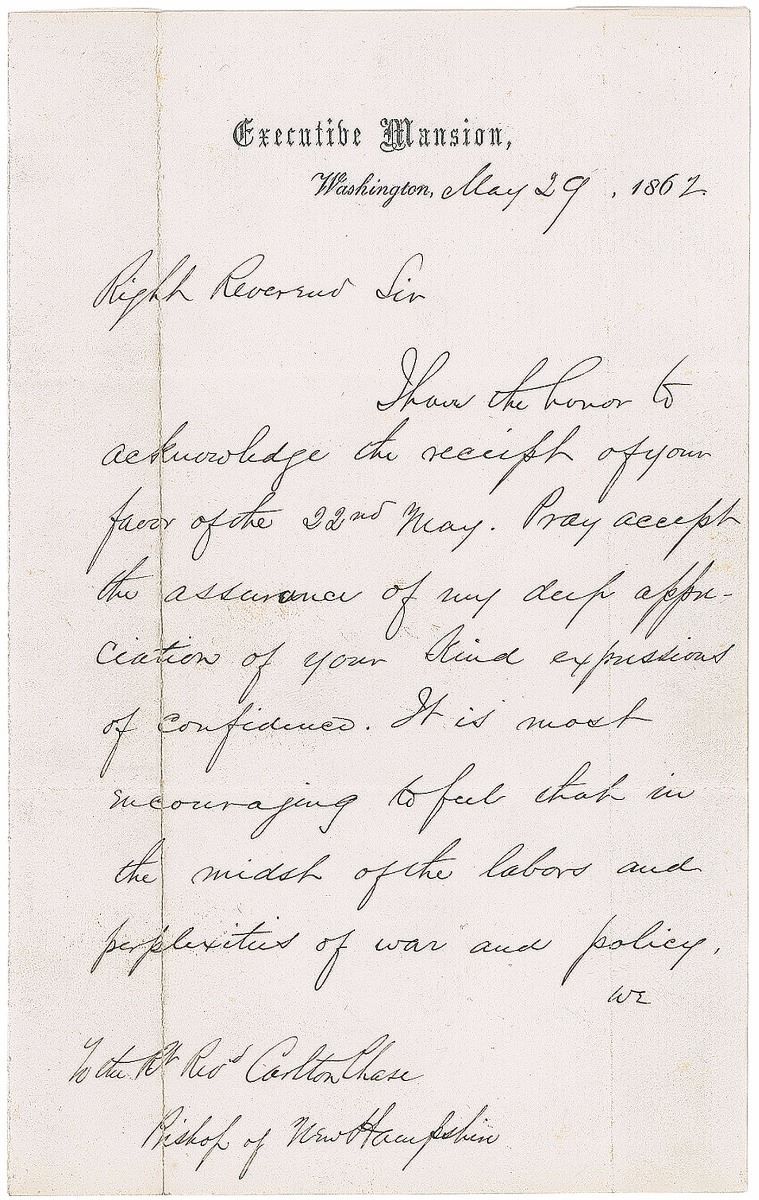 Executive Mansion,
Washington, May 29, 1862.
Right Reverend Sir
I have the honor to
acknowledge the receipt of your
favor of the 22nd May. Pray accept
the assurance of my deep appre-
ciation of your kind expressions
of confidence. It is most
encouraging to feel that in
the midst of the labors and
perplexities of war and policy,
we
To the Rt Revd Carlton Chase
Bishop of New Hampshire